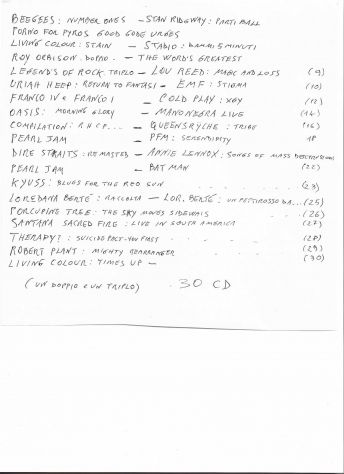 BEEGEES: NUMBER ONES - STAN RIDGWAY: PARTI BALL
PORNO FOR PYROS GOOD GODS URGES
LIVING COLOUR: STAIN - STADIO: DAMMI 5 MINUTI
ROY ORBISON: DOPPIO. - THE WORD'S GREATEST
LEGENDS OF ROCK TRIPLO - LOU REED: MAGIC AND LOSS (9)
URIAH HEEP: RETURN TO FANTASI - EMF: STIGMA (10)
FRANCO IV E FRANCO I - COLD PLAY: X&Y (12)
OASIS: MORNING GLORY - MANONEGRA LIVE (14)
COMPILATION: R.H.C.P... - QUEENSRYCHE: TRIBE (16)
PEARL JAM - PFM: SERENDIPITY 18
DIRE STRAITS: REMASTER - ANNIE LENNOX: SONGS OF MASS DESTRUCTION
PEARL JAM - BATMAN (22)
KYUSS: BLUES FOR THE RED SUN (23)
LOREDANA BERTÉ: RACCOLTA - LOR. BERTÉ: UN PETTIROSSO DA... (25)
PORCUPINE TREE: THE SKY MOVES SIDEWAIS (26)
SANTANA SACRED FIRE: LIVE IN SOUTH AMERICA (27)
THERAPY?: SUICIDE PACT-YOU FIRST (28)
ROBERT PLANT: MIGHTY REARRANGER (29)
LIVING COLOUR: TIMES UP - (30)
(UN DOPPIO E UN TRIPLO) 30 CD